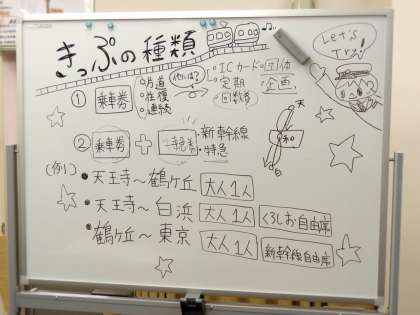 きっぷの種類
Let's Try!
① 乗車券 ・片道 ・往復 ・連続
他には?
・ICカード ・団体
・定期 ・企画
・回数券
② 乗車券 + 特急券 ・新幹線 ・特急
天
和
白
(例)
・天王寺〜鶴ケ丘 大人1人
・天王寺〜白浜 大人1人 くろしお自由席
・鶴ケ丘〜東京 大人1人 新幹線自由席